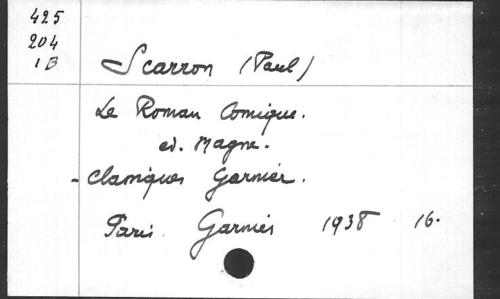 425
204
1B
Scarron (Paul)
Le Roman Comique.
ed. Magne.
- Classiques Garnier.
Paris Garnier 1938 16.